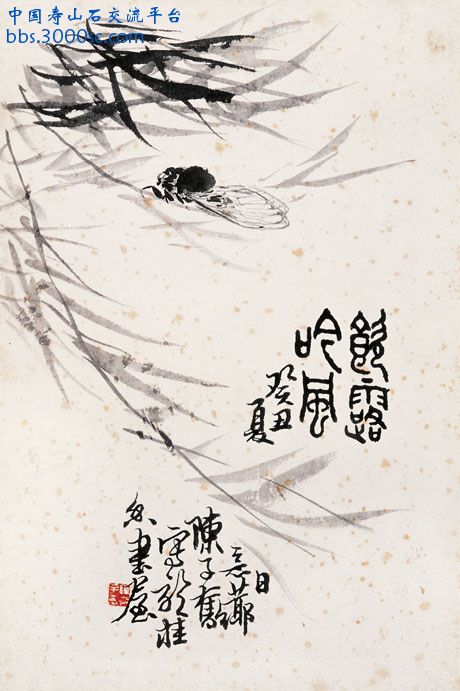 中国寿山石交流平台
bbs.3000sc.com
飲露
吟風
癸丑夏
日意薌
陳子奮
寫於桂
香書屋